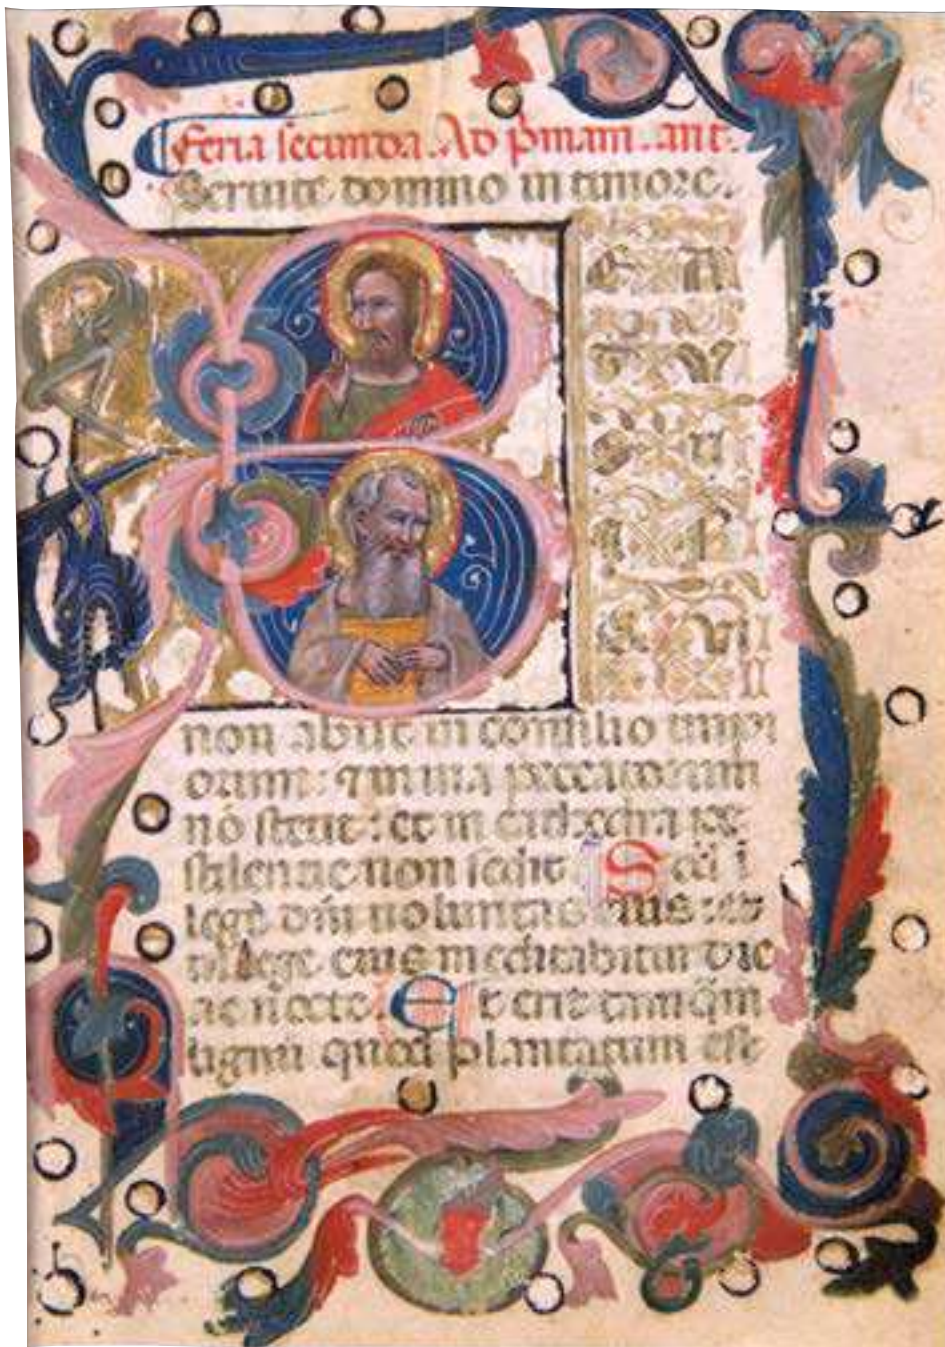 15
Feria secunda. Ad p̄mam. ant.
Seruite domino in timore.
B
non abiit in consilio impi
orum: ⁊ in uia peccatorum
nō stetit: et in cathedra pe
stilentie non sedit Sed ī
lege dn̄i uoluntas eius: et
in lege eius meditabitur die
ac nocte. Et erit tanq̄m
lignū quod plantatum est